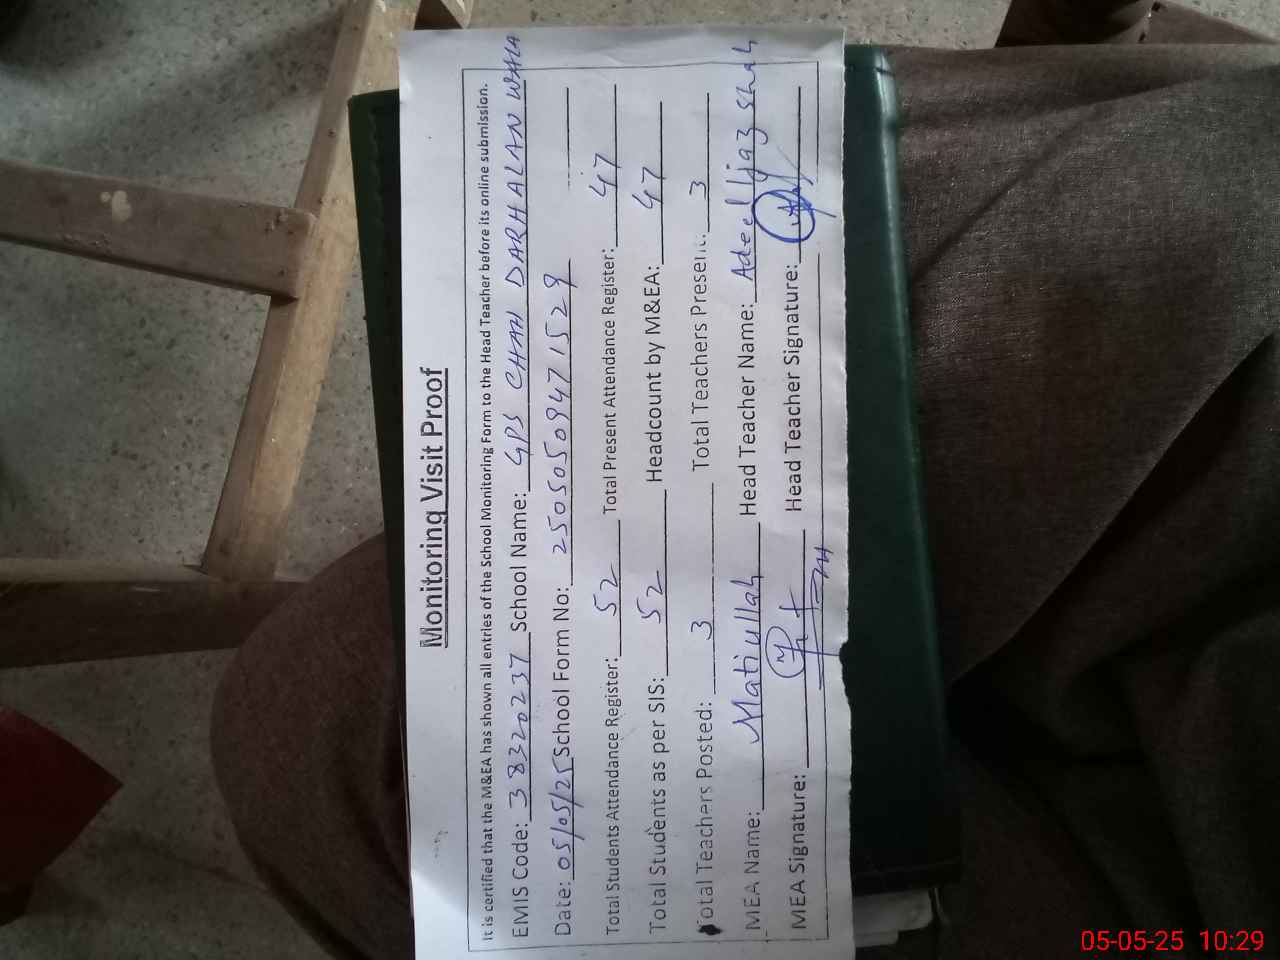 Monitoring Visit Proof
It is certified that the M&EA has shown all entries of the School Monitoring Form to the Head Teacher before its online submission.
EMIS Code: 38320237 School Name: GPS CHAH DARHALAN WALA
Date: 05/05/25 School Form No: 25050509471529
Total Students Attendance Register: 52 Total Present Attendance Register: 47
Total Students as per SIS: 52 Headcount by M&EA: 47
Total Teachers Posted: 3 Total Teachers Present: 3
MEA Name: Matiullah Head Teacher Name: Adeel Ijaz Shah
MEA Signature: Head Teacher Signature:
05-05-25 10:29